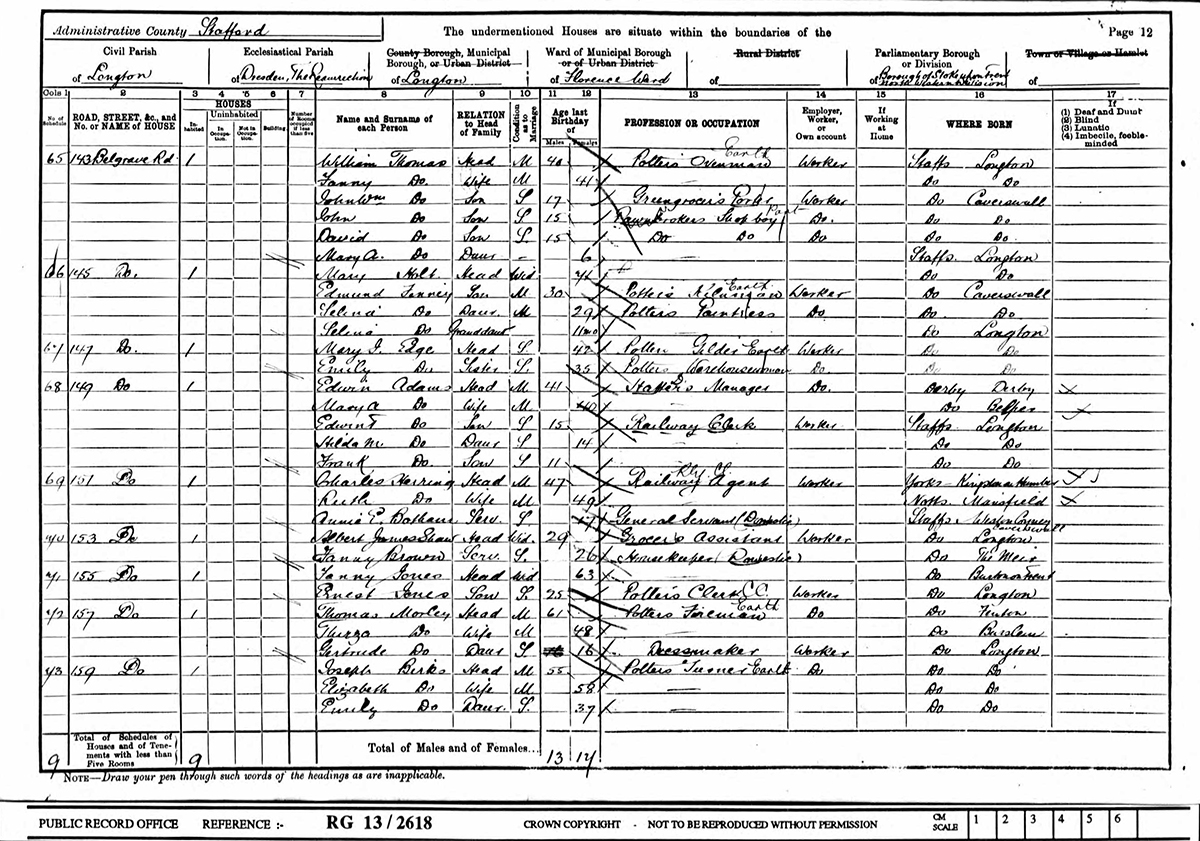 Administrative County Stafford The undermentioned Houses are situate within the boundaries of the Page 12
Civil Parish Ecclesiastical Parish County Borough, Municipal Borough, or Urban District Ward of Municipal Borough or of Urban District Rural District Parliamentary Borough or Division Town or Village or Hamlet
of Longton of Dresden, The Resurrection of Longton of Florence Ward of of Borough of Stoke upon Trent of
Cols 1 2 3 4 5 6 7 8 9 10 11 12 13 14 15 16 17
No of Schedule ROAD, STREET, &c., and No. or NAME of HOUSE HOUSES Inhabited Uninhabited In Occupation. Not in Occupation. Building Number of Rooms occupied if less than five Name and Surname of each Person RELATION to Head of Family Condition as to Marriage Age last Birthday of Males Females PROFESSION OR OCCUPATION Employer, Worker, or Own account If Working at Home WHERE BORN If (1) Deaf and Dumb (2) Blind (3) Lunatic (4) Imbecile, feeble-minded
65 143 Belgrave Rd 1 William Thomas Head M 40 Potters Ovenman Earth Worker Staffs Longton
Fanny Do Wife M 41 Do Do
John Wm Do Son S 17 Greengrocer's Porter Worker Do Caverswall
John Do Son S 15 Pawnbrokers Shop boy Do. Do Do
David Do Son S. 15 Do Do Do Do Do
Mary A. Do Daur 6 Staffs Longton
66 145 Do. 1 Mary Holt Head Wid 71 Do Do
Edmund Finney Son M 30 Potter's Kilnman Earth Worker Do Caverswall
Selina Do Daur M 29 Potters Paintress Do Do Do
Selina Do Granddaur 11mo Do Longton
67 147 Do. 1 Mary J. Edge Head S 42 Potters Gilder Earth Worker Do Do
Emily Do Sister S. 35 Potters Warehousewoman Do. Do Do
68 149 Do 1 Edwin Adams Head M 41 Manager Do. Derby Derby
Mary A Do Wife M 40 Do Belper
Edwin T Do Son S 15 Railway Clerk Worker Staffs Longton
Hilda M. Do Daur S 14 Do Do
Frank Do. Son S 11 Do Do
69 151 Do 1 Charles Herring Head M 47 Railway Agent Worker Yorks
Ruth Do Wife M 49 Notts Mansfield
Annie E. Serv. S General Servant (Domestic) Staffs Weston Coyney Caverswall
70 153 Do 1 Albert James Shaw Head Wid. 29 Grocer's Assistant Worker Do Longton
Fanny Brown Serv. S 26 Housekeeper (Domestic) Do The Meir
71 155 Do 1 Fanny Jones Head Wid 63 Do Burton on Trent
Ernest Jones Son S. 25 Potters Clerk Worker Do Longton
72 157 Do 1 Thomas Morley Head M 61 Potters Fireman Earth Do Do Fenton
Thirza Do Wife M 48 Do Burslem
Gertrude Do Daur S 16 Dressmaker Worker Do Longton
73 159 Do 1 Joseph Birks Head M 55 Potters Turner Earth Do Do Do
Elizabeth Do Wife M 58 Do Do
Emily Do Daur. S. 37 Do Do
9 Total of Schedules of Houses and of Tenements with less than Five Rooms 9 Total of Males and of Females... 13 17
NOTE—Draw your pen through such words of the headings as are inapplicable.
PUBLIC RECORD OFFICE REFERENCE :- RG 13 / 2618 CROWN COPYRIGHT - NOT TO BE REPRODUCED WITHOUT PERMISSION CM SCALE 1 2 3 4 5 6